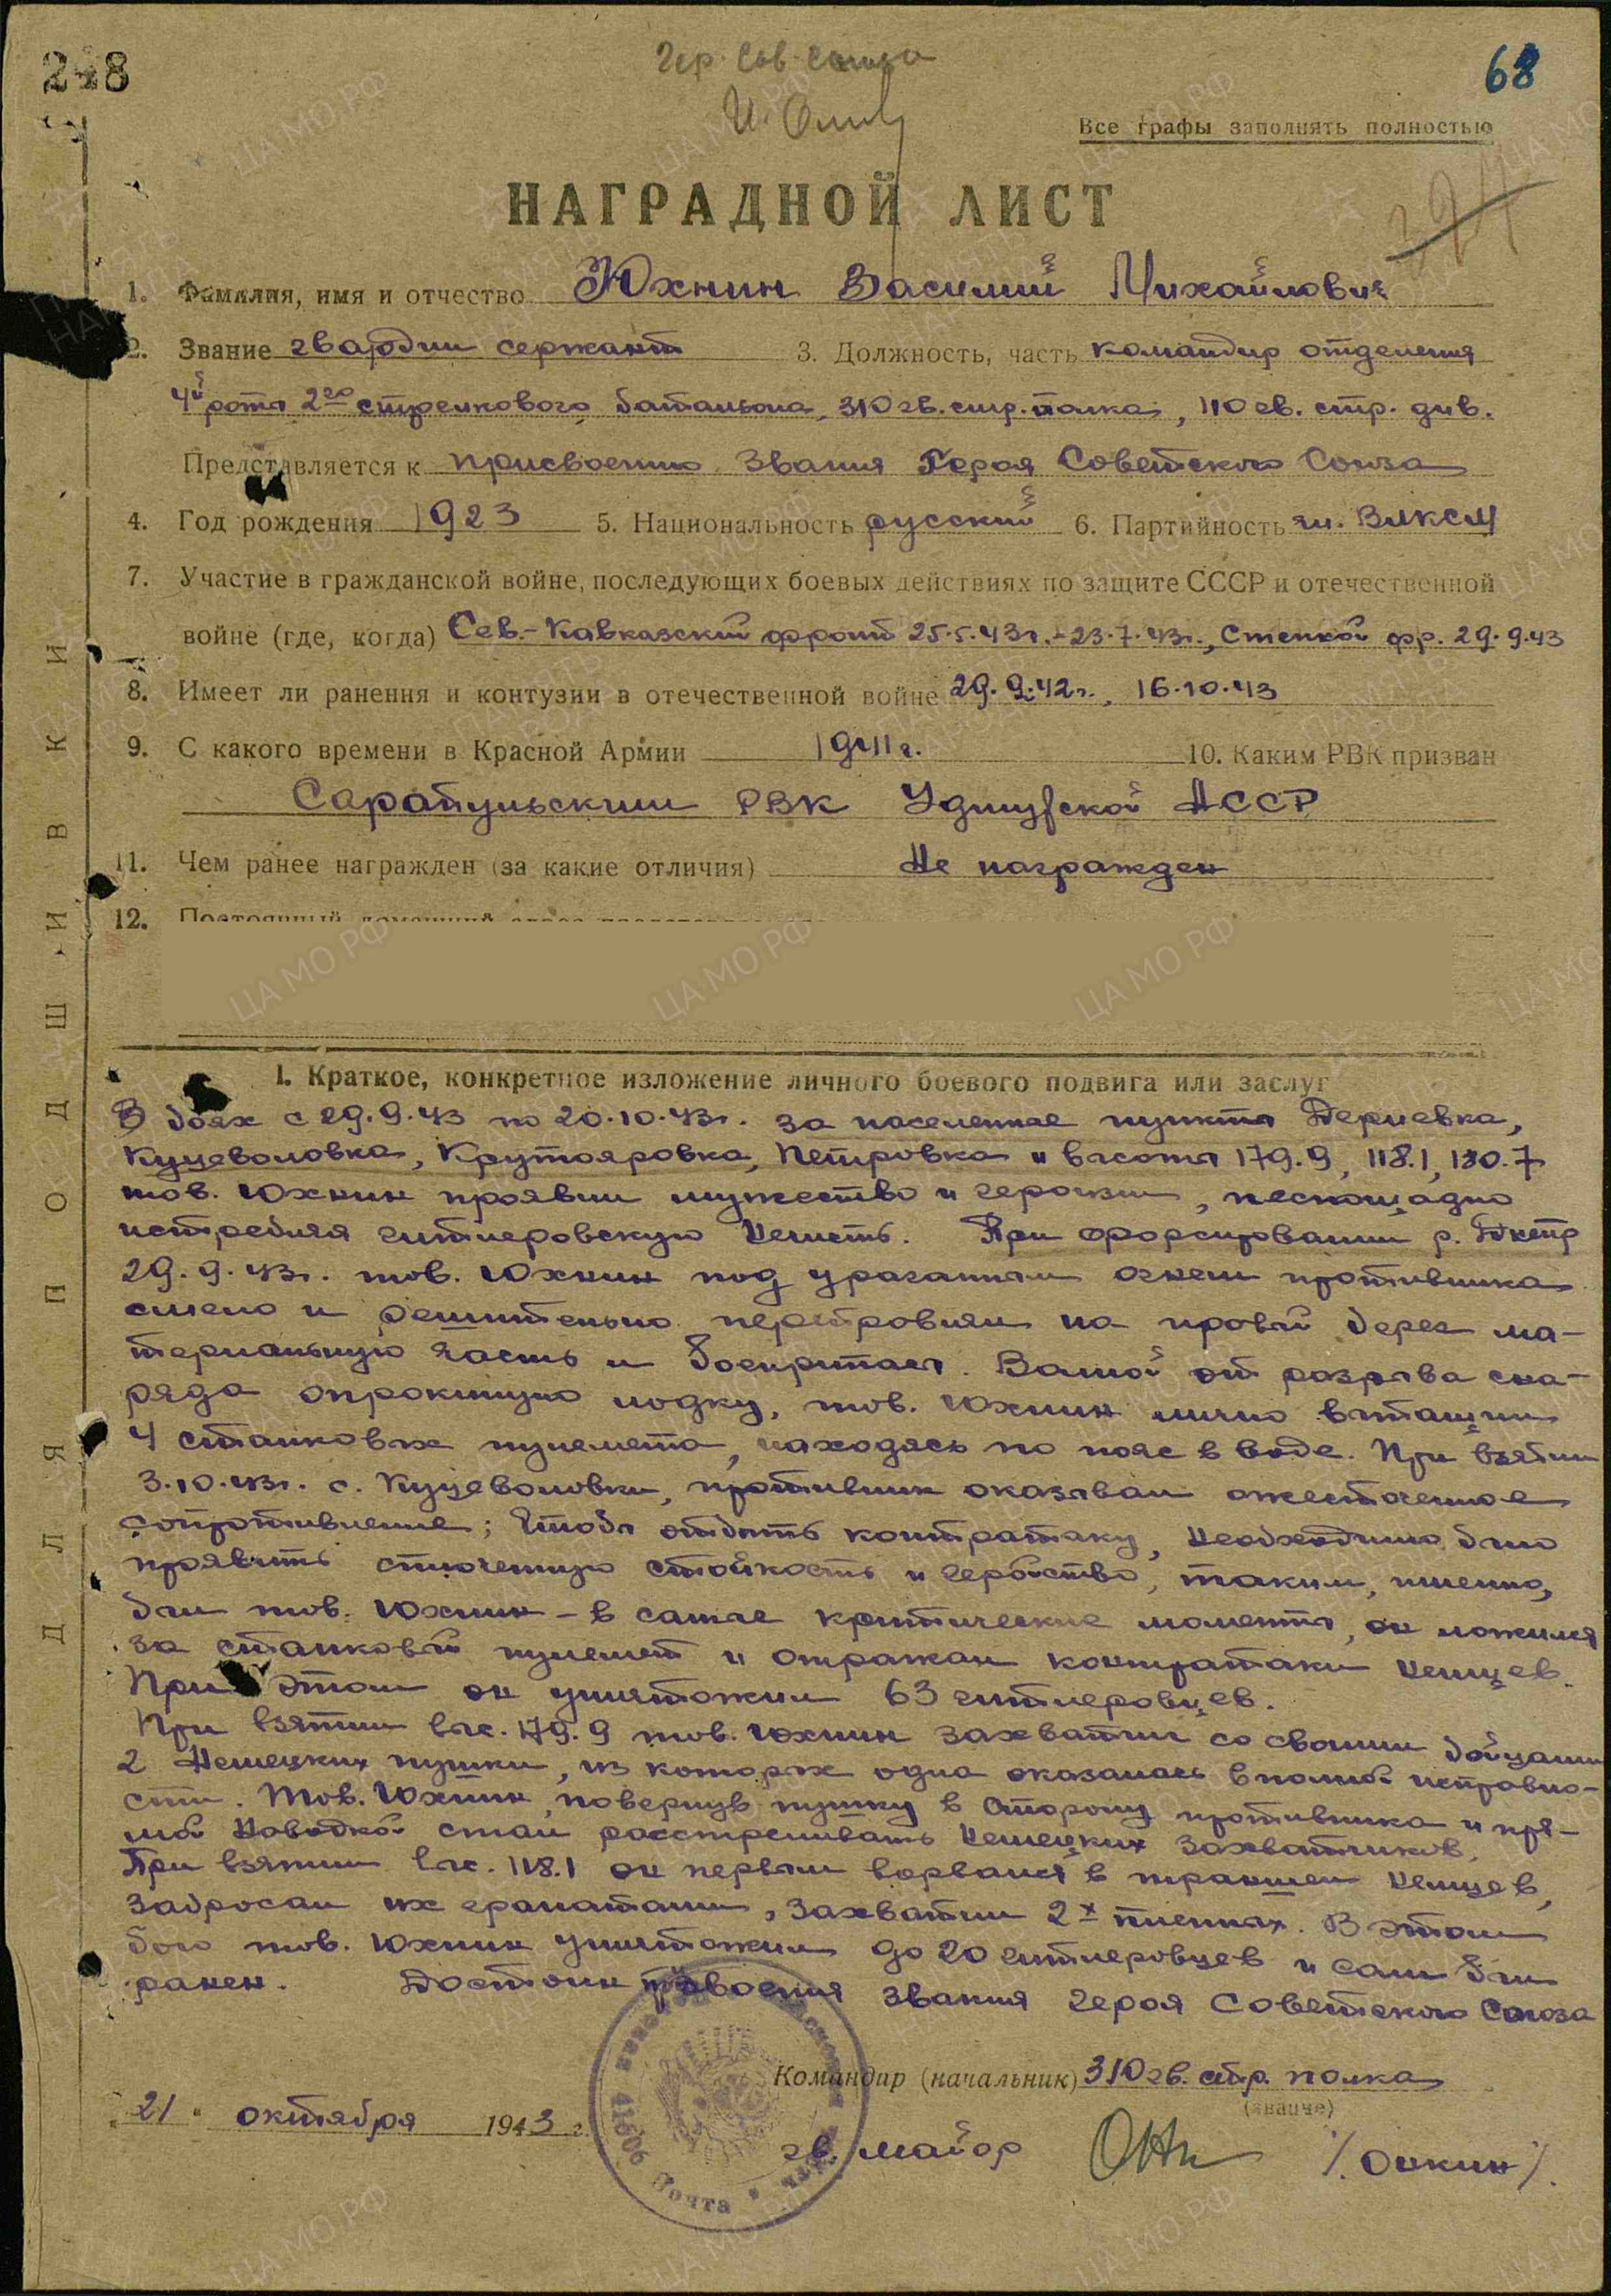 248
Гер. Сов. Союза
68
Все графы заполнять полностью
НАГРАДНОЙ ЛИСТ
1. Фамилия, имя и отчество Юхнин Василий Михайлович
2. Звание гвардии сержант 3. Должность, часть командир отделения
4й роты 2го стрелкового батальона, 310 гв. стр. полка, 110 гв. стр. див.
Представляется к присвоению звания Героя Советского Союза
4. Год рождения 1923 5. Национальность русский 6. Партийность чл. ВЛКСМ
7. Участие в гражданской войне, последующих боевых действиях по защите СССР и отечественной
войне (где, когда) Сев.-Кавказский фронт 25.5.43г.-23.7.43г., Степной фр. 29.9.43
8. Имеет ли ранения и контузии в отечественной войне 29.9.42г., 16.10.43
9. С какого времени в Красной Армии 1941г. 10. Каким РВК призван
Сарапульским РВК Удмуртской АССР
11. Чем ранее награжден (за какие отличия) Не награжден
12. Постоянный домашний адрес
I. Краткое, конкретное изложение личного боевого подвига или заслуг
В боях с 29.9.43 по 20.10.43г. за населенные пункты Дериевка,
Куцеволовка, Крутояровка, Петровка и высоты 179.9, 118.1, 130.7
тов. Юхнин проявил мужество и героизм, беспощадно
истребляя гитлеровскую нечисть. При форсировании р. Днепр
29.9.43г. тов. Юхнин под ураганным огнем противника
смело и решительно переправлял на правый берег ма-
териальную часть и боеприпасы. Волной от разрыва сна-
ряда опрокинуло лодку, тов. Юхнин лично вытащил
4 станковых пулемета, находясь по пояс в воде. При взятии
3.10.43г. с. Куцеволовки, противник оказывал ожесточенное
сопротивление; Чтобы отбить контратаку, необходимо было
проявить сплоченную стойкость и геройство, таким, именно,
был тов. Юхнин - в самые критические моменты, он ложился
за станковый пулемет и отражал контратаки немцев.
При этом он уничтожил 63 гитлеровцев.
При взятии выс. 179.9 тов. Юхнин захватил со своими бойцами
2 немецких пушки, из которых одна оказалась в полной исправно-
сти. Тов. Юхнин, повернув пушку в сторону противника и пря-
мой наводкой стал расстреливать немецких захватчиков.
При взятии выс. 118.1 он первым ворвался в траншеи немцев,
забросал их гранатами, захватил 2х пленных. В этом
бою тов. Юхнин уничтожил до 20 гитлеровцев и сам был
ранен. Достоин присвоения звания Героя Советского Союза
Командир (начальник) 310 гв. стр. полка
(звание)
"21" октября 1943 г.
гв. майор /Онкин/.
41606 Почта
ДЛЯ ПОДШИВКИ
ЦА МО РФ
ПАМЯТЬ НАРОДА